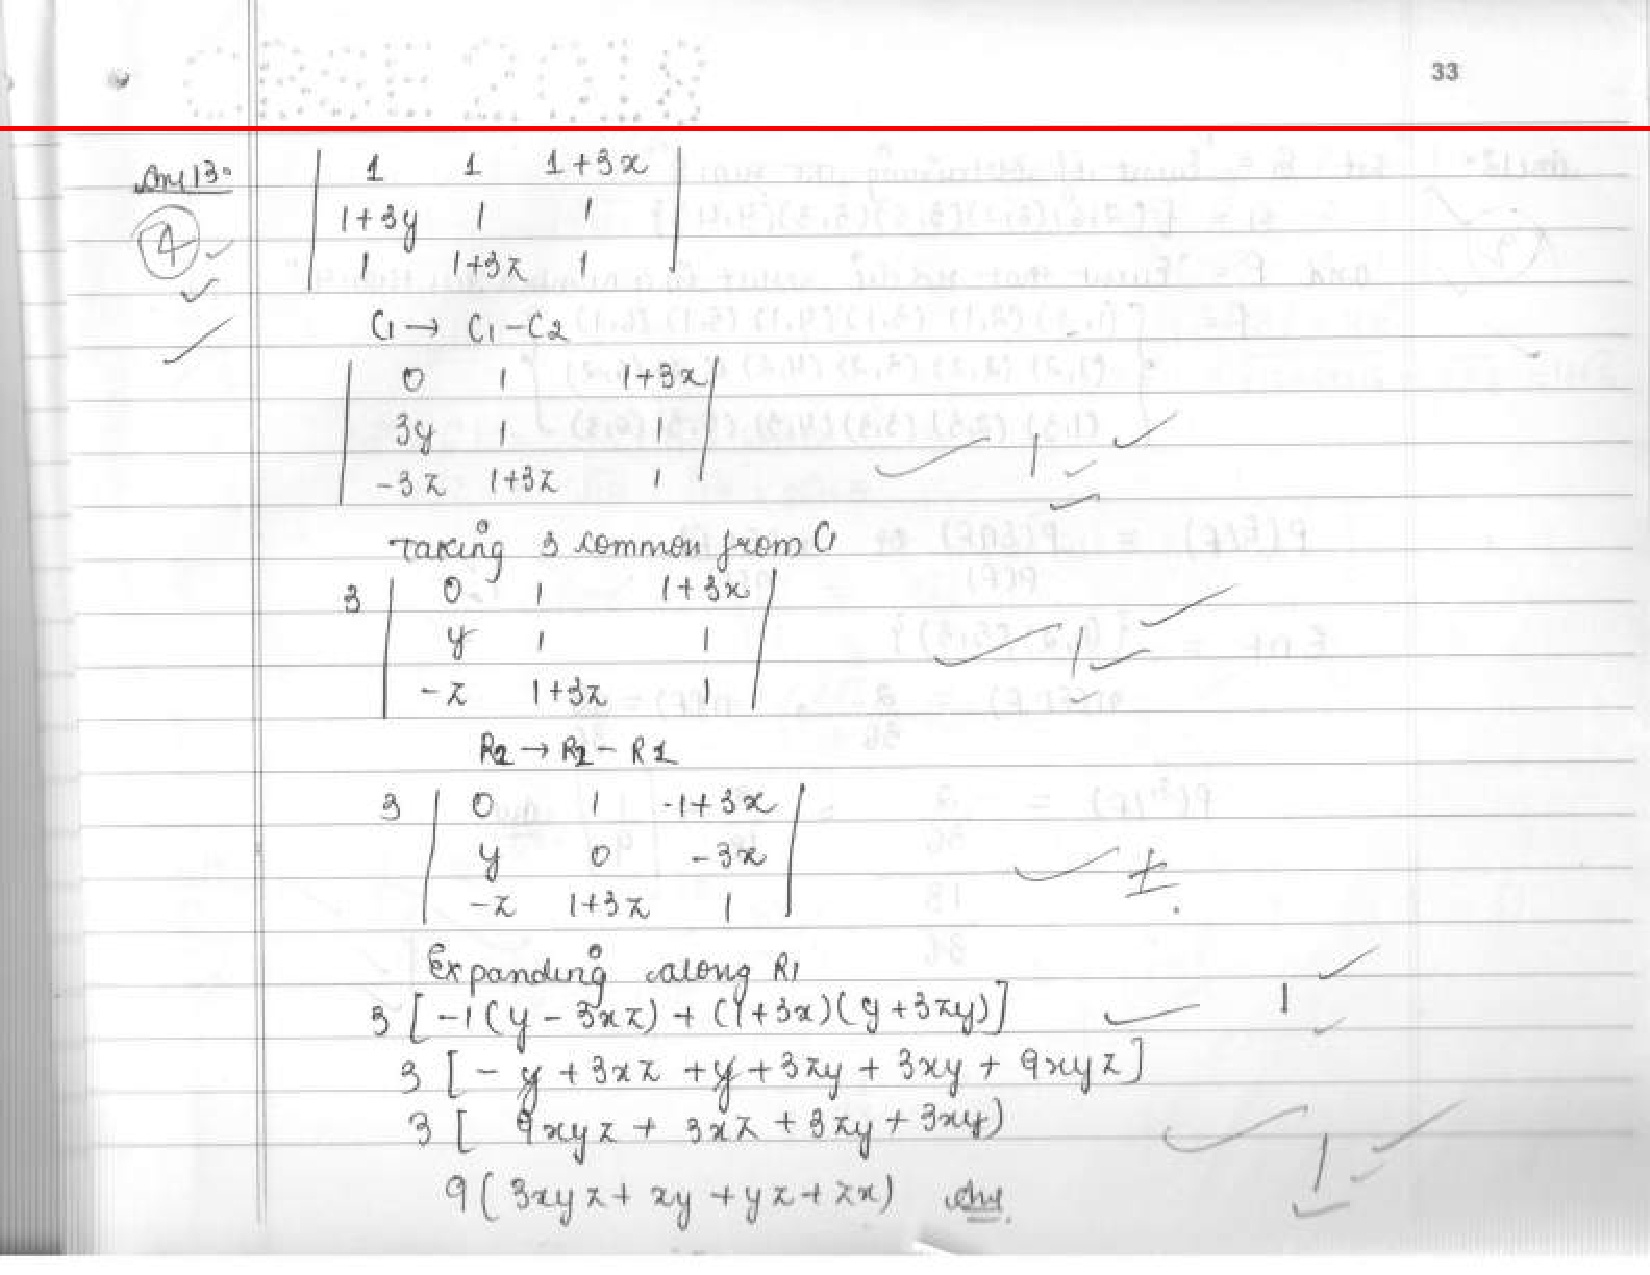 CBSE 2018
33
Ans 13.
4
| 1 1 1+3x |
| 1+3y 1 1 |
| 1 1+3z 1 |
C1 → C1-C2
| 0 1 1+3x |
| 3y 1 1 |
| -3z 1+3z 1 |
1
Taking 3 common from C1
3 | 0 1 1+3x |
| y 1 1 |
| -z 1+3z 1 |
1
R2 → R2 - R1
3 | 0 1 -1+3x |
| y 0 -3x |
| -z 1+3z 1 |
Expanding along R1
3 [ -1(y - 3xz) + (1+3x)(y+3zy)]
1
3 [ - y + 3xz + y + 3zy + 3xy + 9xyz ]
3 [ 9xyz + 3xz + 3zy + 3xy)
1
9 ( 3xyz + xy + yz + zx) Ans.